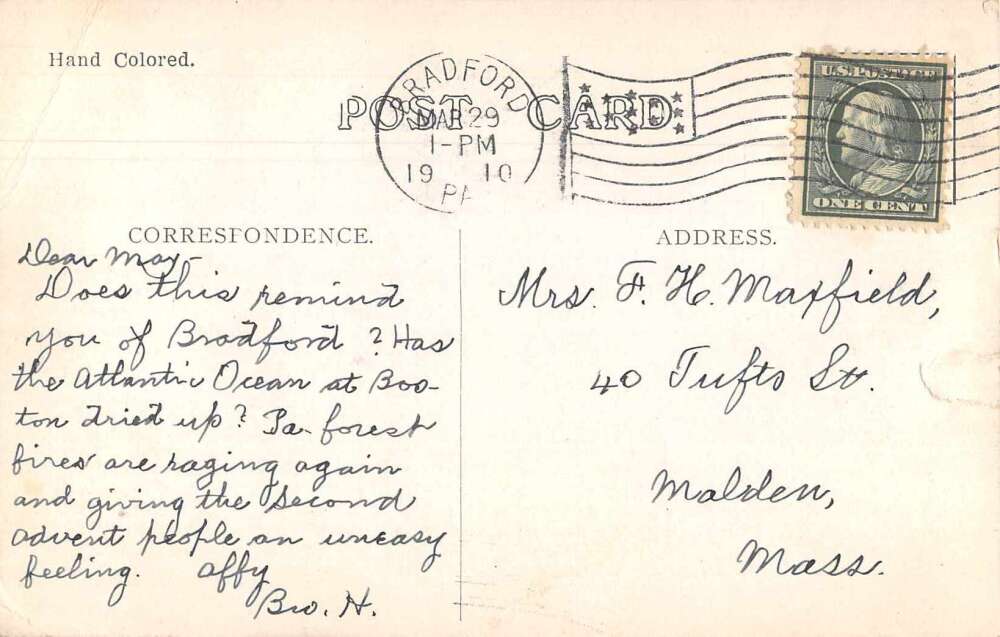 Hand Colored.
POST CARD
BRADFORD
MAR 29
1-PM
19 10
PA
U.S. POSTAGE
ONE CENT
CORRESPONDENCE.
Dear May-
Does this remind
you of Bradford? Has
the Atlantic Ocean at Bos-
ton dried up? Pa. forest
fires are raging again
and giving the Second
advent people an uneasy
feeling. Affy
Bro. H.
ADDRESS.
Mrs. F. H. Mayfield,
40 Tufts St.
Malden,
Mass.